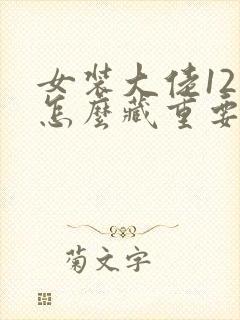 女装大佬12
怎麼藏重要
菊文字